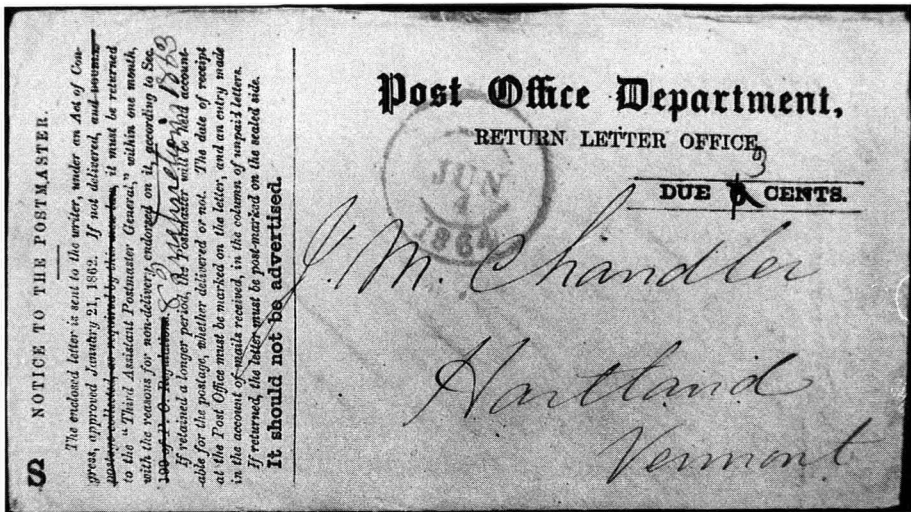 S
NOTICE TO THE POSTMASTER.
The enclosed letter is sent to the writer, under an Act of Con-
gress, approved January 21, 1862. If not delivered, and
postage collected as required by this new law, it must be returned
to the "Third Assistant Postmaster General," within one month,
with the reasons for non-delivery endorsed on it, according to Sec.
of P. O. Regulations. 1863
If retained a longer period, the Postmaster will be held account-
able for the postage, whether delivered or not. The date of receipt
at the Post Office must be marked on the letter, and an entry made
in the account of mails received, in the column of unpaid letters.
If returned, the letter must be post-marked on the sealed side.
It should not be advertised.
Post Office Department,
RETURN LETTER OFFICE,
3
DUE CENTS.
JUN
4
1864
J. M. Chandler
Hartland
Vermont